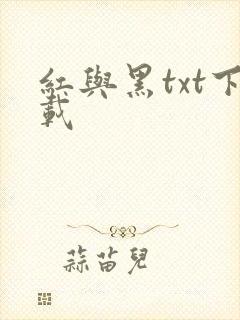 紅與黑txt下
載
蒜苗兒